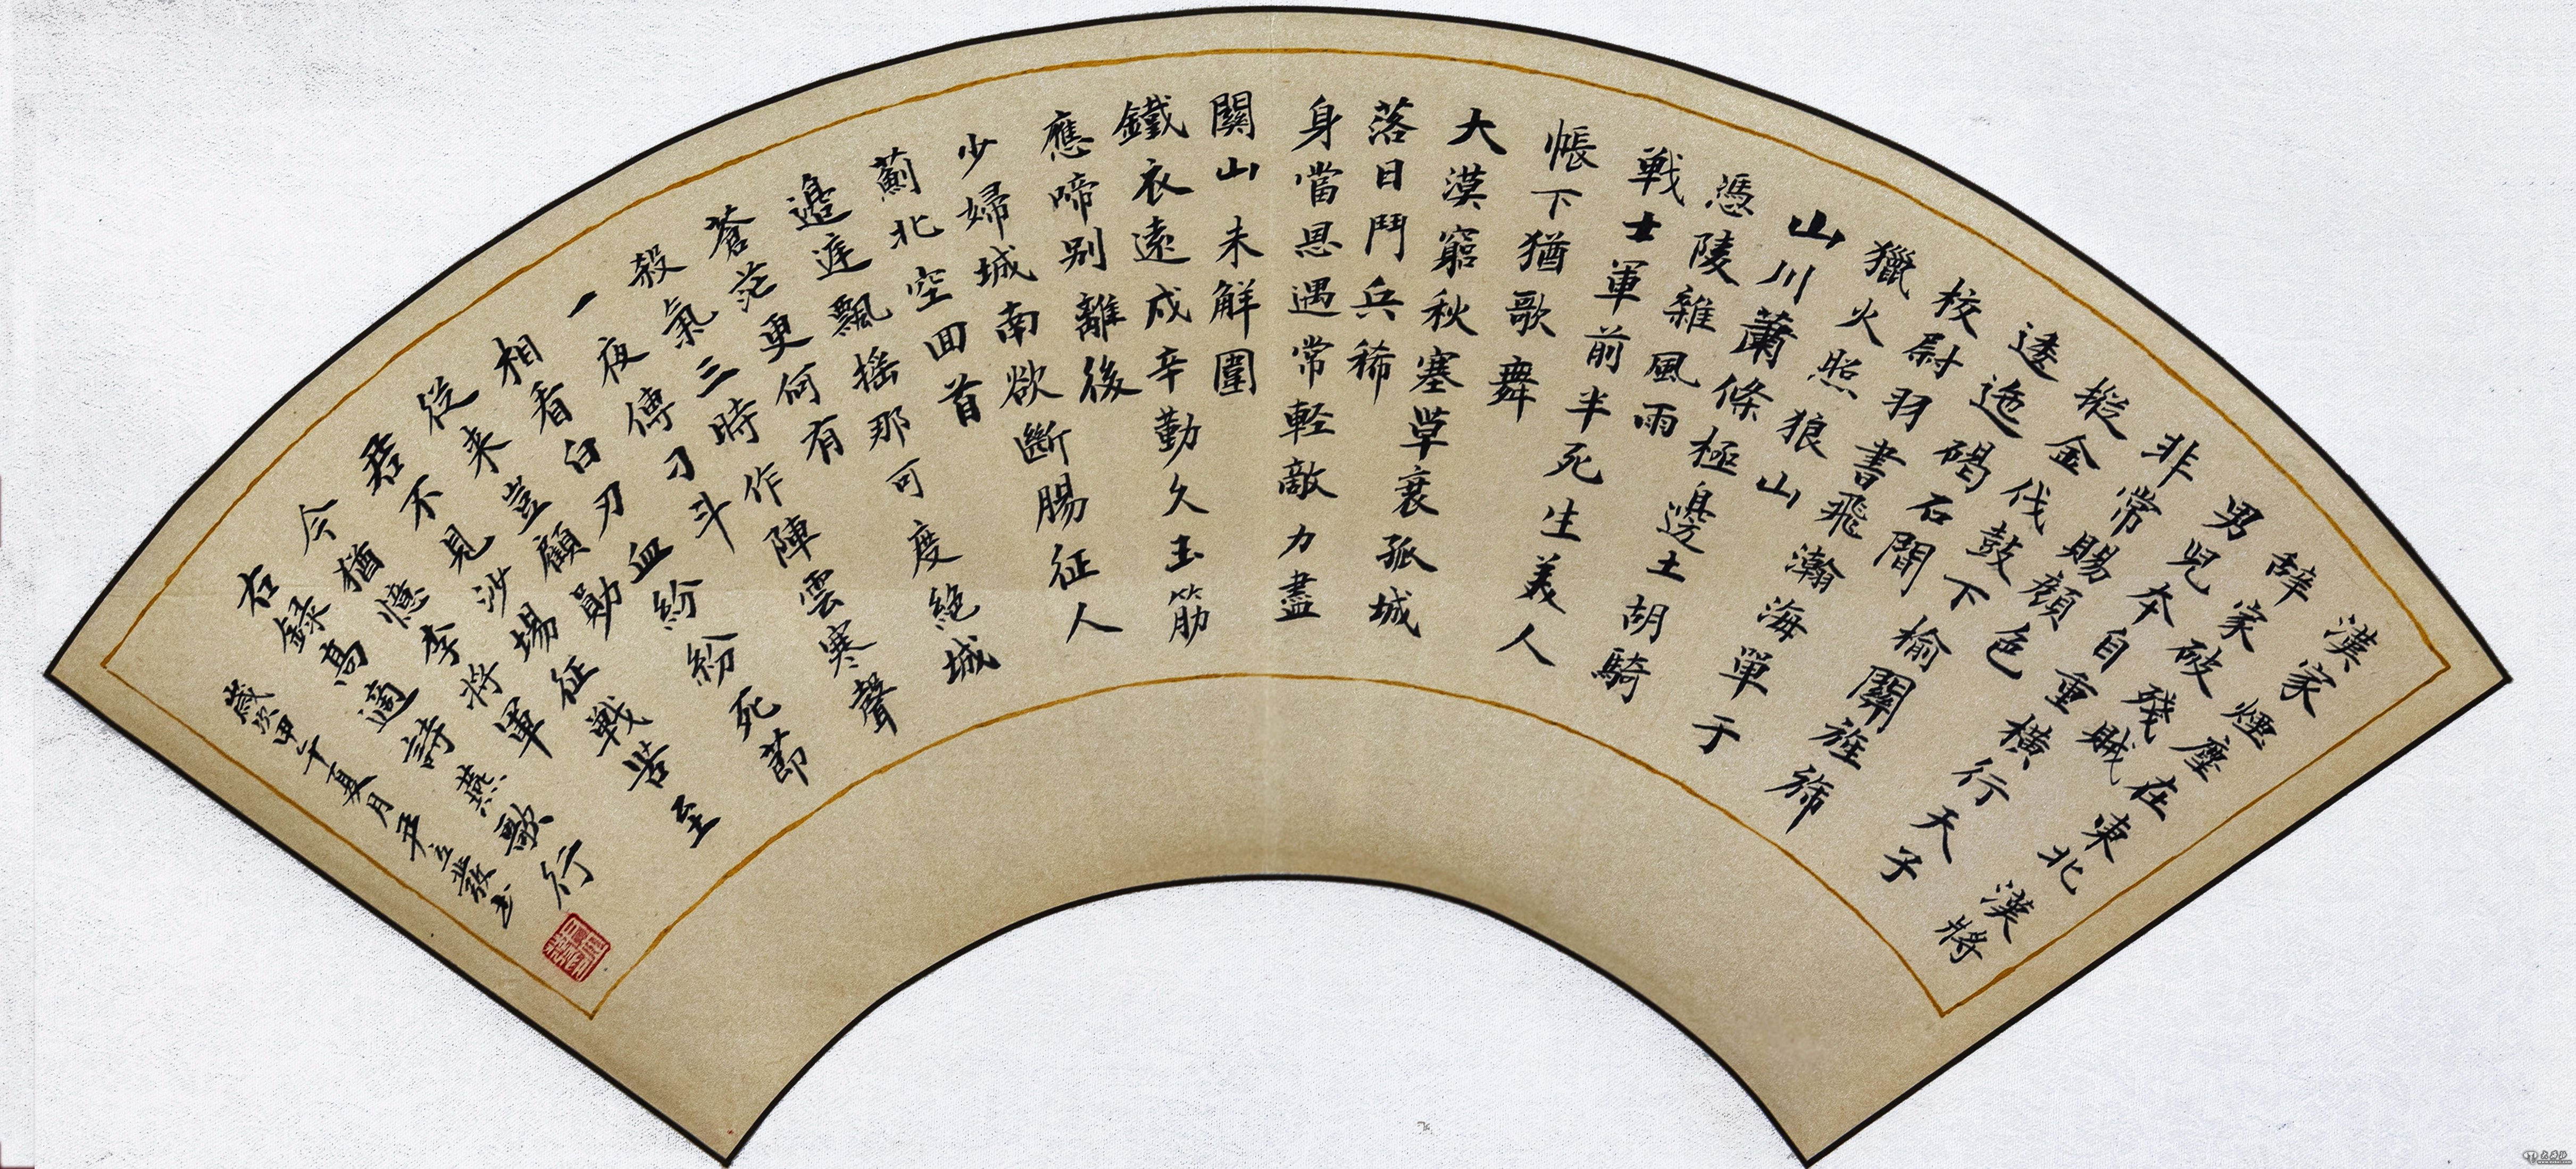 漢家煙塵在東北漢將
辞家破殘賊
男児本自重横行天子
非常賜顔色
摐金伐鼓下榆關旌旆
逶迤碣石間
校尉羽書飛瀚海單于
獵火照狼山
山川蕭條極邊土胡騎
憑陵雜風雨
戦士軍前半死生美人
帳下猶歌舞
大漠窮秋塞草衰孤城
落日鬥兵稀
身當恩遇常軽敵力盡
關山未解圍
鐵衣遠戍辛勤久玉筋
應啼別離後
少婦城南欲斷腸征人
薊北空回首
邊庭飄搖那可度絕城
蒼茫更何有
殺氣三時作陣雲寒聲
一夜傳刁斗
相看白刃血紛紛死節
從来豈顧勛
君不見沙場征戦苦至
今猶憶李将軍
右録高適詩燕歌行
歲次甲午夏月